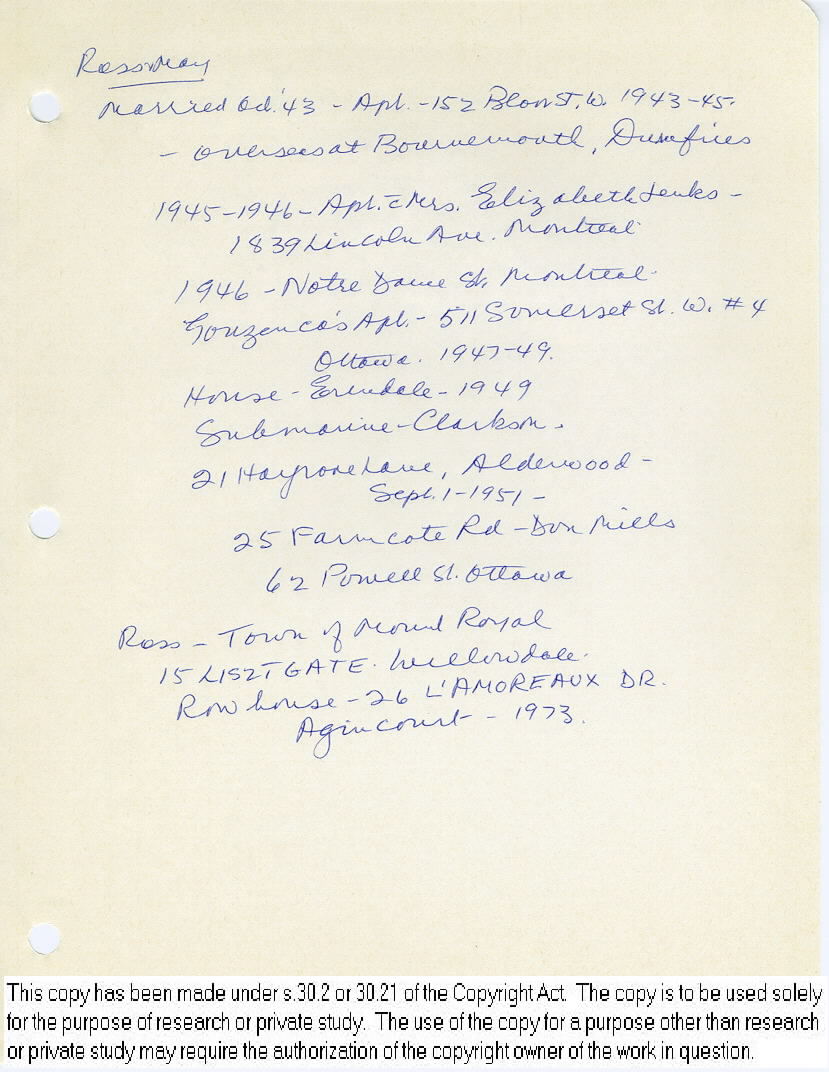 Ross & May
Married Oct. '43 - Apt. - 152 Bloor St. W. 1943-45.
- overseas at Bournemouth, Dumfries
1945-1946 - Apt. c̄ Mrs. Elizabeth Jenks -
1839 Lincoln Ave. Montreal
1946 - Notre Dame St. Montreal.
Gouzenco's Apt. - 511 Somerset St. W. # 4
Ottawa. 1947-49.
House - Erindale - 1949
Submarine - Clarkson.
21 Lane, Alderwood -
Sept. 1 - 1951 -
25 Farmcote Rd - Don Mills
62 Powell St. Ottawa
Ross - Town of Mount Royal
15 LISZT GATE. Willowdale.
Row house - 26 L'AMOREAUX DR.
Agincourt - 1973.
This copy has been made under s.30.2 or 30.21 of the Copyright Act. The copy is to be used solely
for the purpose of research or private study. The use of the copy for a purpose other than research
or private study may require the authorization of the copyright owner of the work in question.